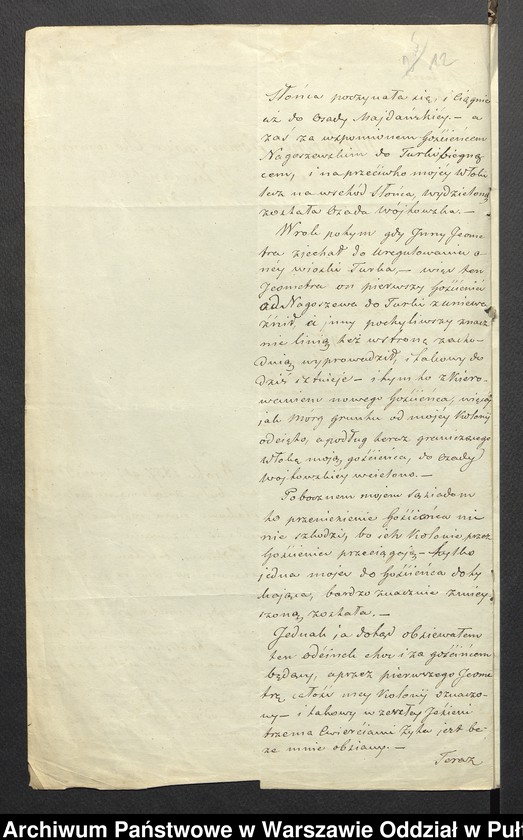 12
Słońca poczynała się, i ciągnie
aż do Osady Majdańskiéy — a
zaś za wspomionem Gościńcem
Nagoszewskim do Turki biegną-
cem, i na przećiwko mojéy Włoki
też na wschód słońca, wydzieloną
została Osada Wójtowska. —
W rok potym gdy Inny Jeome-
tra zjechał do uregulowania o-
néy wioski Turka, — więc ten
Jeometra on pierwszy Gościeniec
od Nagoszewa do Turki zuniewa-
żnił, á inny pochyliwszy znacz-
nie linią też w stronę zacho-
dnią wyprowadził, i takowy do
dziś istnieje — i tym to zkiero-
waniem nowego Gościeńca, więcéj
jak Morg gruntu od mojéy Kolonij
odcięto, a podług teraz graniczącego
Włokę moją, gościńca, do Osady
Wojtowskiéy wcielono. —
Pobocznem mojem Sąsiadom
to przeniesienie Gościeńca nic
nie szkodzi, bo ich Kolonie przez
Gościeniec przeciągają — tylko
jedna moja do Gościeńca doty-
kająca, bardzo znacznie zmiey-
szoną, została. —
Jednak ja dotąd obsiewałem
ten odcinek choc i za gościńcem
będący, a przez pierwszego Jeome-
trę całość mey Kolonij oznaczo-
ny — i takowy w zeszłey Jesieni
trzema Cwierćiami Żyta jest be-
ze mnie obsiany. —
Teraz
Archiwum Państwowe w Warszawie Oddział w Puł